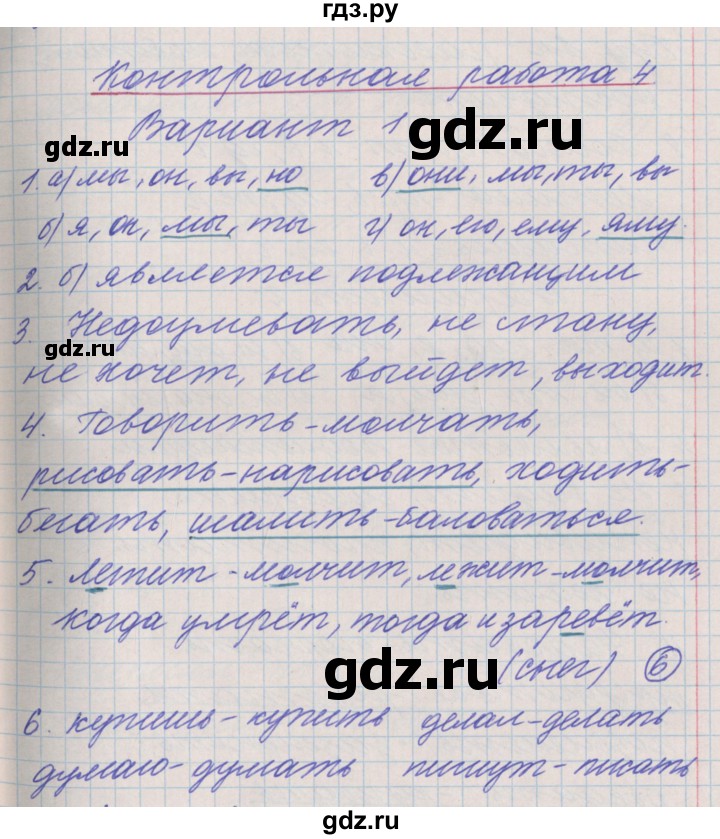 гдз.ру
Контрольная работа 4
Вариант 1
1. а) мы, он, вы, но в) они, мы, ты, вы
б) я, он, мы, ты г) он, его, ему, яму.
2. б) является подлежащим
3. Недоумевать, не стану,
не хочет, не выйдет, выходит.
4. Говорить-молчать,
рисовать-нарисовать, ходить-
бегать, шалить-баловаться.
5. Летит - молчит, лежит - молчит,
когда умрёт, тогда и заревёт.
(снег) 6
6. купишь - купить делал - делать
думаю - думать пишут - писать
gdz.ru
gdz.ru
gdz.ru
gdz.ru
gdz.ru
gdz.ru
gdz.ru
gdz.ru
gdz.ru
gdz.ru